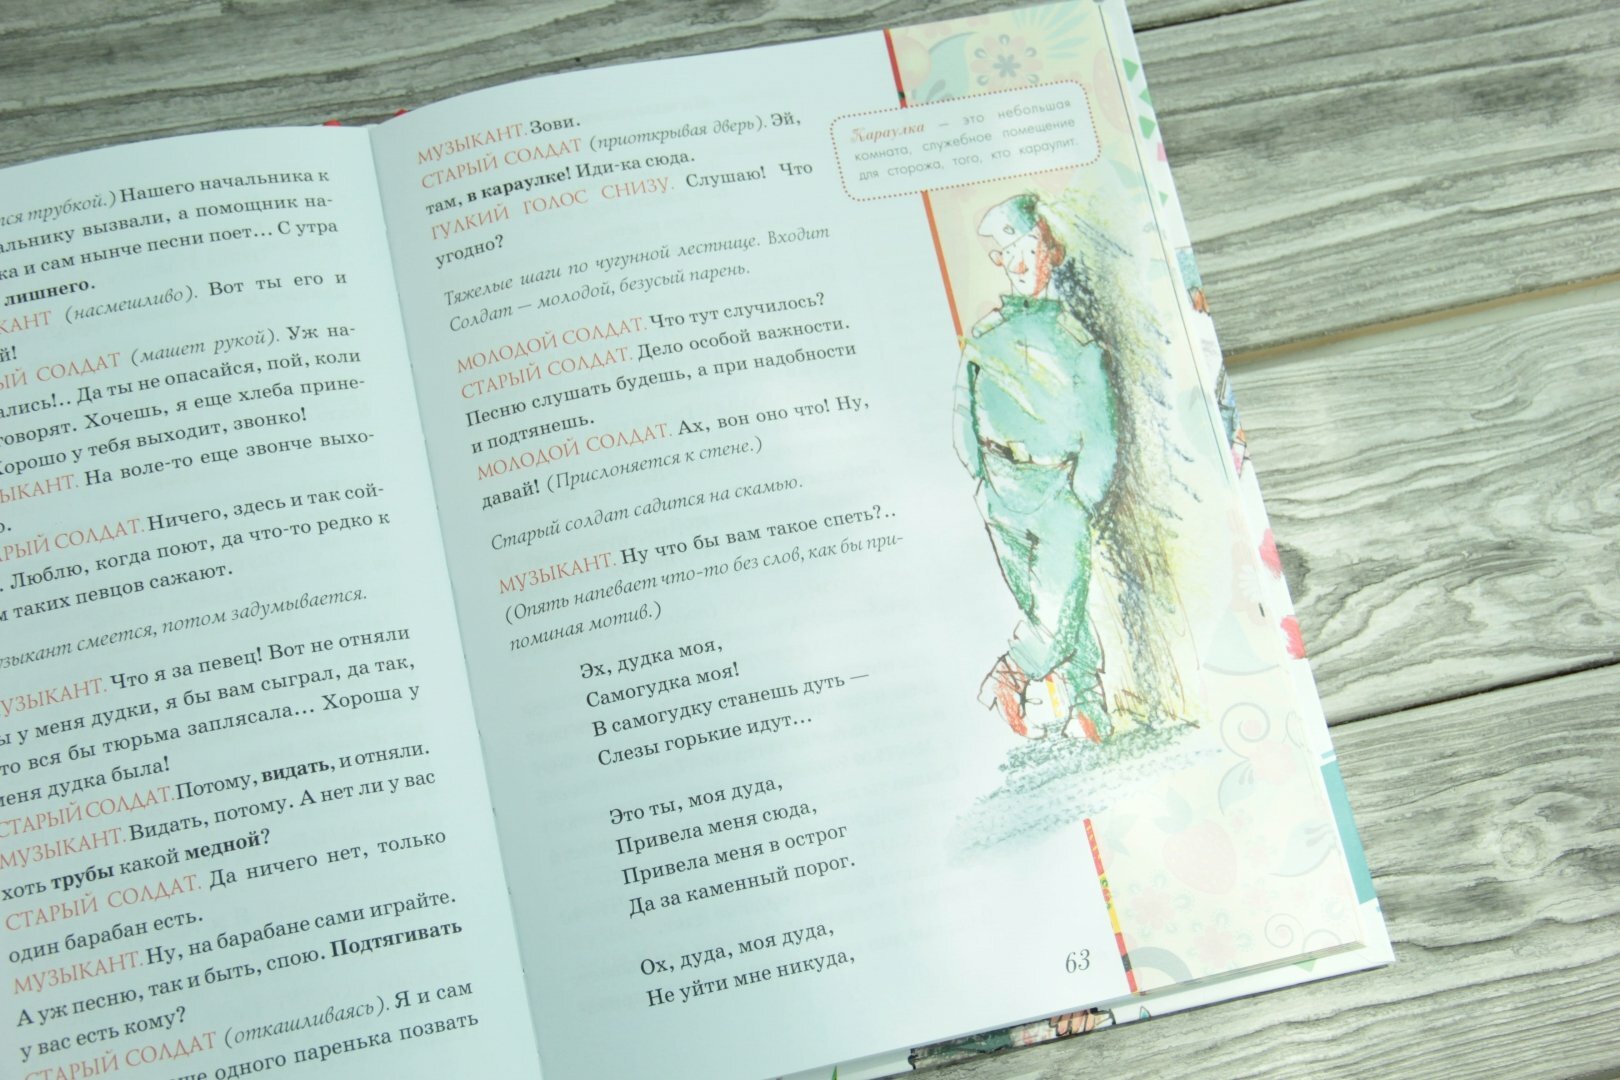 тся трубкой.) Нашего начальника к
альнику вызвали, а помощник на-
ка и сам нынче песни поет... С утра
лишнего.
КАНТ (насмешливо). Вот ты его и
й!
ЫЙ СОЛДАТ (машет рукой). Уж на-
ались!.. Да ты не опасайся, пой, коли
говорят. Хочешь, я еще хлеба прине-
Хорошо у тебя выходит, звонко!
ЫКАНТ. На воле-то еще звонче выхо-
о.
АРЫЙ СОЛДАТ. Ничего, здесь и так сой-
. Люблю, когда поют, да что-то редко к
м таких певцов сажают.
узыкант смеется, потом задумывается.
УЗЫКАНТ. Что я за певец! Вот не отняли
ы у меня дудки, я бы вам сыграл, да так,
то вся бы тюрьма заплясала... Хороша у
меня дудка была!
СТАРЫЙ СОЛДАТ. Потому, видать, и отняли.
МУЗЫКАНТ. Видать, потому. А нет ли у вас
хоть трубы какой медной?
СТАРЫЙ СОЛДАТ. Да ничего нет, только
один барабан есть.
МУЗЫКАНТ. Ну, на барабане сами играйте.
А уж песню, так и быть, спою. Подтягивать
у вас есть кому?
СТАРЫЙ СОЛДАТ (откашливаясь). Я и сам
одного паренька позвать
МУЗЫКАНТ. Зови.
СТАРЫЙ СОЛДАТ (приоткрывая дверь). Эй,
там, в караулке! Иди-ка сюда.
ГУЛКИЙ ГОЛОС СНИЗУ. Слушаю! Что
угодно?
Тяжелые шаги по чугунной лестнице. Входит
Солдат — молодой, безусый парень.
МОЛОДОЙ СОЛДАТ. Что тут случилось?
СТАРЫЙ СОЛДАТ. Дело особой важности.
Песню слушать будешь, а при надобности
и подтянешь.
МОЛОДОЙ СОЛДАТ. Ах, вон оно что! Ну,
давай! (Прислоняется к стене.)
Старый солдат садится на скамью.
МУЗЫКАНТ. Ну что бы вам такое спеть?..
(Опять напевает что-то без слов, как бы при-
поминая мотив.)
Эх, дудка моя,
Самогудка моя!
В самогудку станешь дуть —
Слезы горькие идут...
Это ты, моя дуда,
Привела меня сюда,
Привела меня в острог
Да за каменный порог.
Ох, дуда, моя дуда,
Не уйти мне никуда,
63
Караулка — это небольшая
комната, служебное помещение
для сторожа, того, кто караулит.